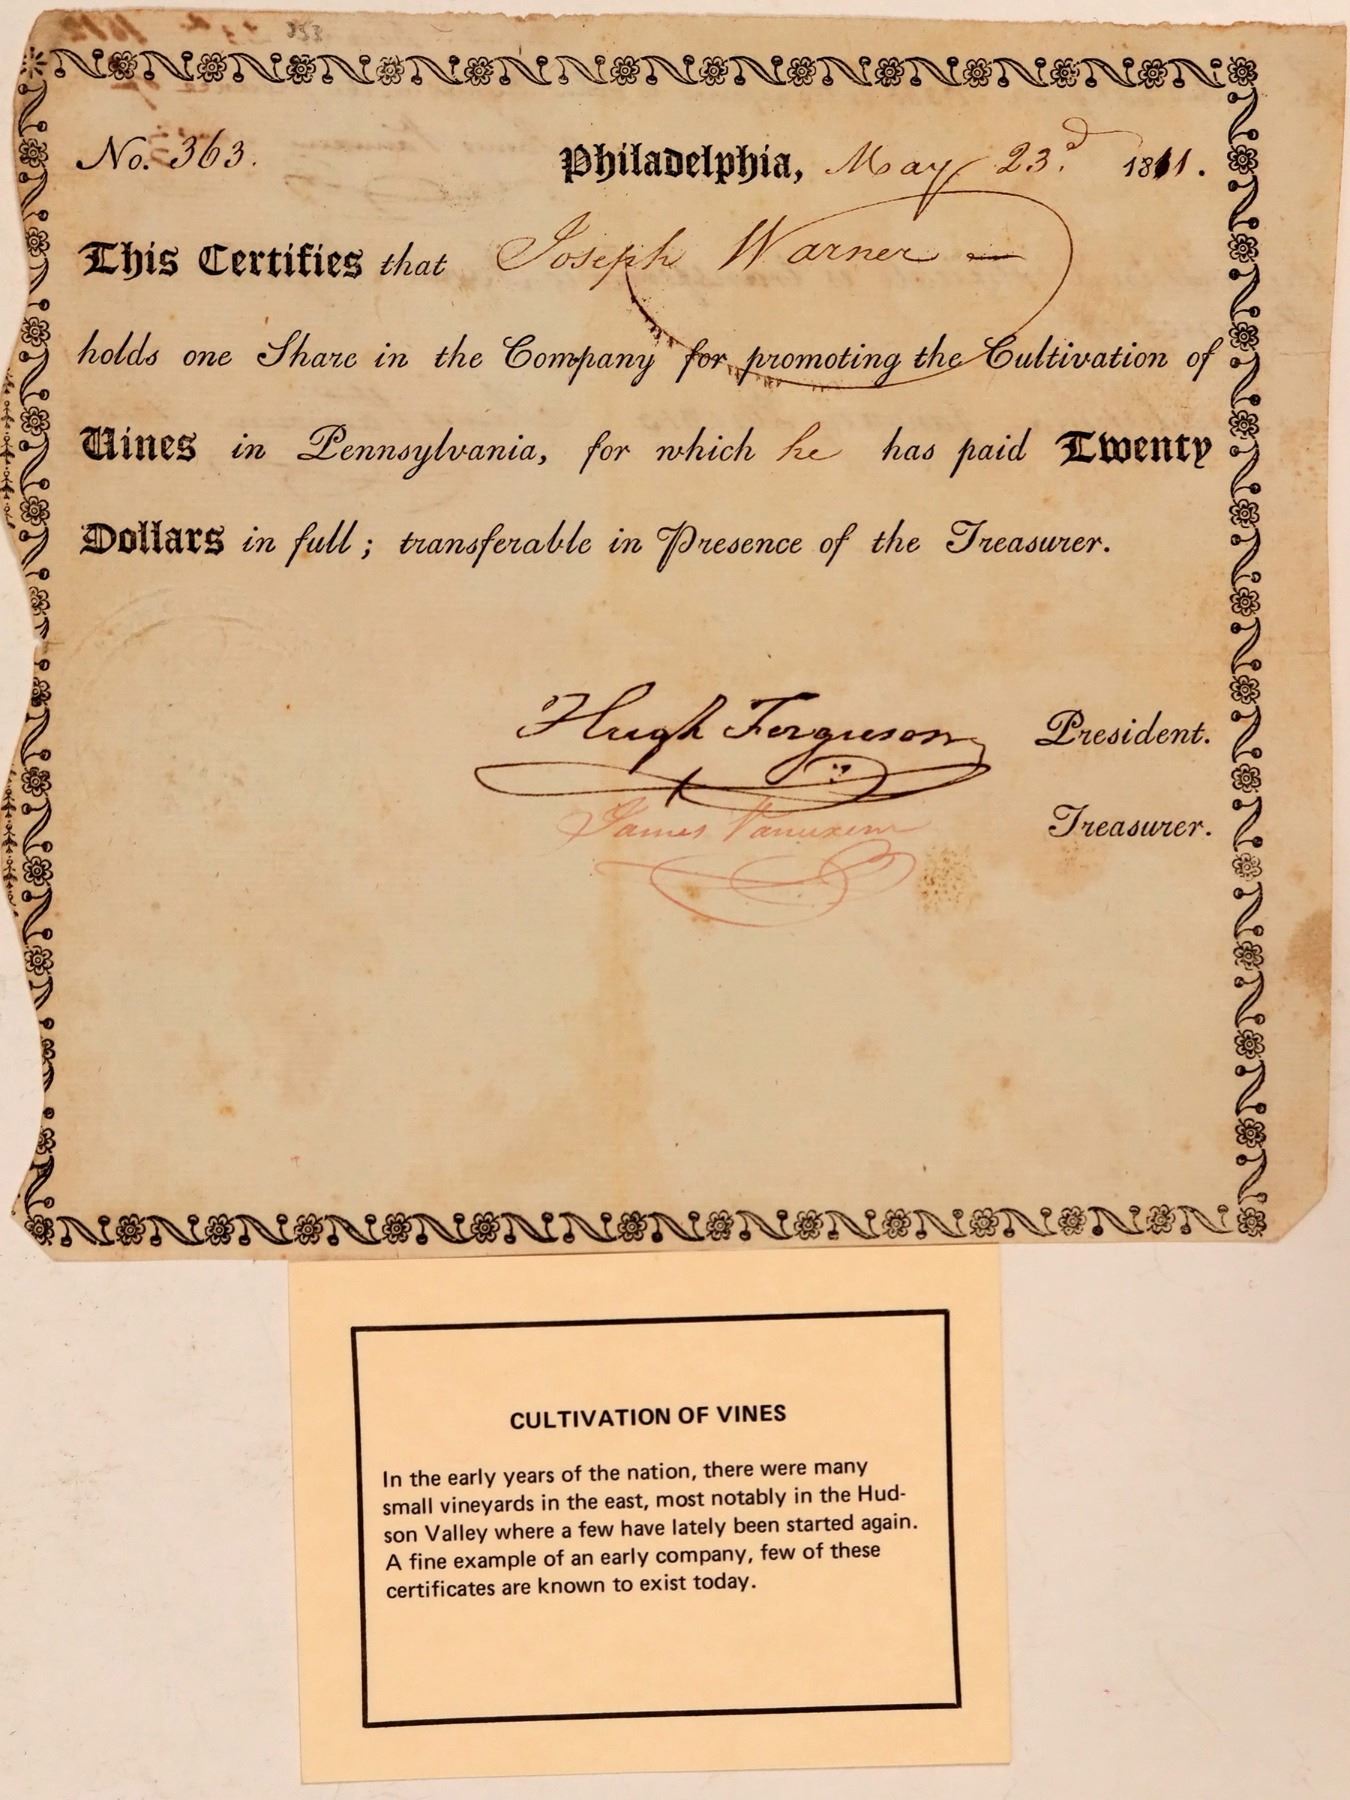 353
No. 363.
Philadelphia, May 23d. 1811.
This Certifies that Joseph Warner —
holds one Share in the Company for promoting the Cultivation of
Vines in Pennsylvania, for which he has paid Twenty
Dollars in full; transferable in Presence of the Treasurer.
Hugh Ferguson President.
James Vanuxem Treasurer.
CULTIVATION OF VINES
In the early years of the nation, there were many
small vineyards in the east, most notably in the Hud-
son Valley where a few have lately been started again.
A fine example of an early company, few of these
certificates are known to exist today.